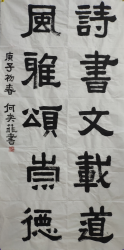 詩書文載道
風雅頌崇德
庚子初春 何英莊書